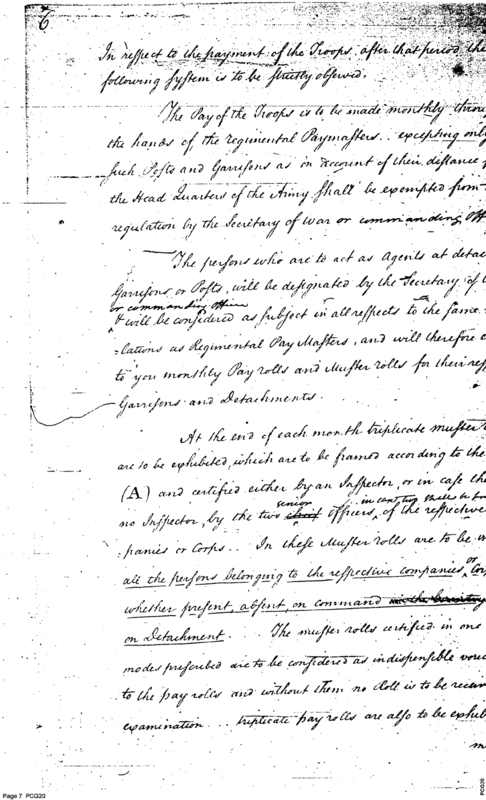 In respect to the payment of the Troops after that period the
following System is to be strictly observed.
The Pay of the Troops is to be made monthly throu
the hands of the regimental Paymasters.. excepting only
such Posts and Garrisons as on account of their distance
the Head Quarters of the Army shall be exempted from
regulation by the Secretary of War or commanding Off
The persons who are to act as Agents at detac
Garrisons or Posts, will be designated by the Secretary of
or commanding officer
& will be considered as subject in all respects to the same
=lations as Regimental Pay Masters, and will therefore
to you monthly Pay rolls and Muster rolls for their res
Garrisons and Detachments.
At the end of each month triplicate muster
are to be exhibited, which are to be framed according to the
(A) and certified either by an Inspector, or in case the
senior
no Inspector, by the two chief officers, of the respective
panies or Corps.. In these Muster rolls are to be
all the persons belonging to the respective companies or
whether present, absent, on command
on Detachment. The muster rolls certified in one
modes prescribed are to be considered as indispensible vouc
to the pay rolls and without them no Roll is to be receiv
examination.. triplicate pay rolls are also to be exhib
Page 7 PCG20
PCG20